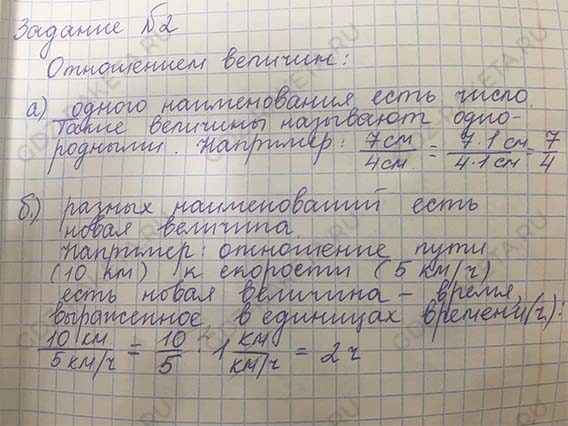 Задание №2
Отношением величин:
а) одного наименования есть число.
Такие величины называют одно-
родными. Например: 7 см/4 см = 7·1 см/4·1 см = 7/4
б.) разных наименований есть
новая величина.
Например: отношение пути
(10 км) к скорости (5 км/ч)
есть новая величина - время,
выраженное в единицах времени(ч):
10 км/5 км/ч = 10/5 · 1 км/км/ч = 2 ч